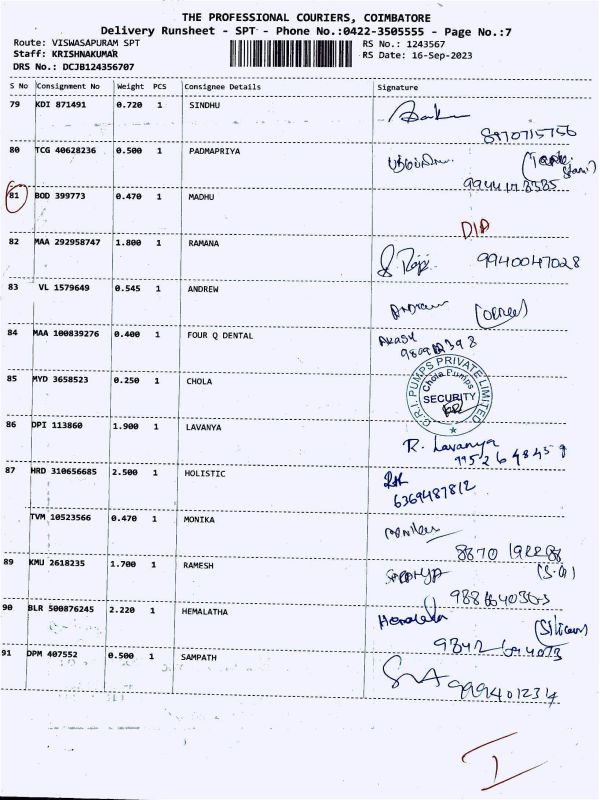 THE PROFESSIONAL COURIERS, COIMBATORE
Delivery Runsheet - SPT - Phone No.:0422-3505555 - Page No.:7
Route: VISWASAPURAM SPT
RS No.: 1243567
Staff: KRISHNAKUMAR
RS Date: 16-Sep-2023
DRS No.: DCJB124356707
S No Consignment No Weight PCS Consignee Details Signature
79 KDI 871491 0.720 1 SINDHU
8970715756
80 TCG 40628236 0.500 1 PADMAPRIYA
81 BOD 399773 0.470 1 MADHU
DIP
82 MAA 292958747 1.800 1 RAMANA
9940047028
83 VL 1579649 0.545 1 ANDREW
84 MAA 100839276 0.400 1 FOUR Q DENTAL
Akash
85 MYD 3658523 0.250 1 CHOLA
C.R.I. PUMPS PRIVATE LIMITED
Chola Pumps
SECURITY
86 DPI 113860 1.900 1 LAVANYA
R. Lavanya
9952648459
87 HRD 310656685 2.500 1 HOLISTIC
6369487812
TVM 10523566 0.470 1 MONIKA
89 KMU 2618235 1.700 1 RAMESH
90 BLR 500876245 2.220 1 HEMALATHA
Hemalatha
91 DPM 407552 0.500 1 SAMPATH
999401234
I